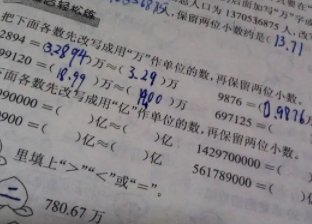 总人口为 1370536875 人, 改
人, 保留两位小数约是( 13.71
己轻松练
把下面各数先改写成用“万”作单位的数, 再保留两位小数。
2894=( 3.2894 )万≈( 3.29 )万
9876=( 0.9876 )
99120=( 18.99 )万≈( )万
697125=(
下面各数先改写成用“亿”作单位的数, 再保留两位小数。
90000=( )亿≈( )亿
1429700000=( )
900=( )亿≈( )亿
561789000=( )亿
里填上“>”“<”或“=”。
780.67 万